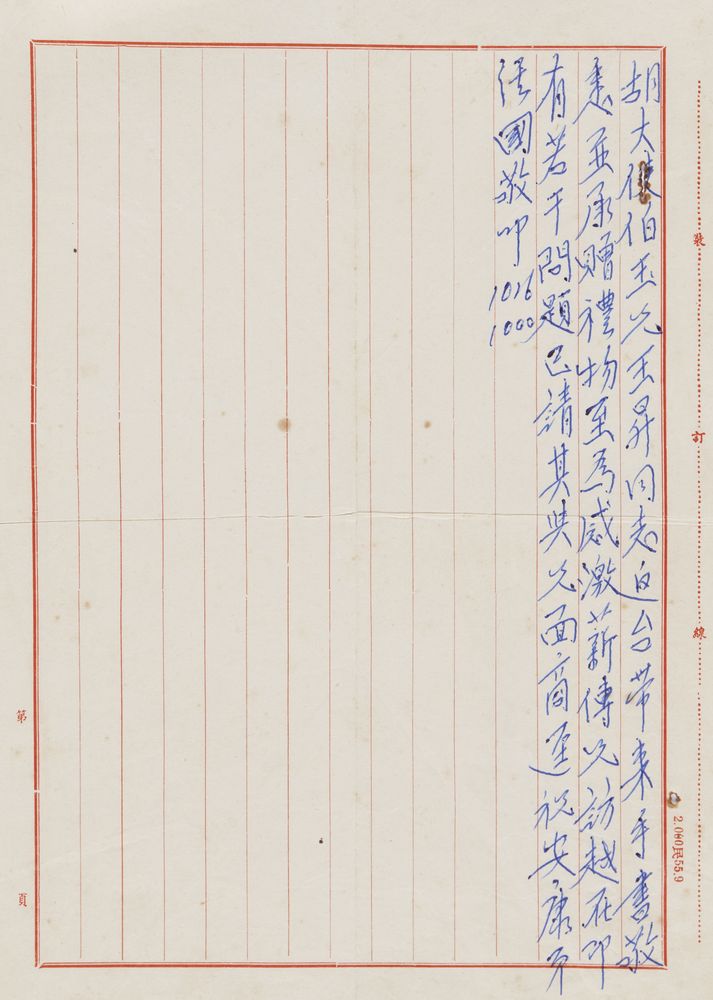 胡大使伯玉兄王昇同志返台带来手書敬
悉並承贈禮物至為感激薪傳兄訪越在即
有若干問題已請其與兄面商運祝安康弟
經國敬叩 1016
1000
裝
訂
線
2.000民55.9
第
頁